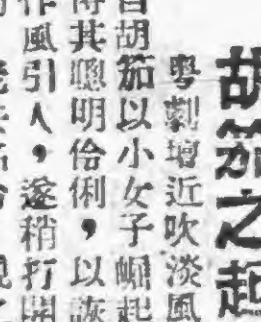 胡笳之起
粵劇壇近吹淡風
胡笳以小女子崛起
其聰明伶俐，以詼
作風引人，遂稍打開